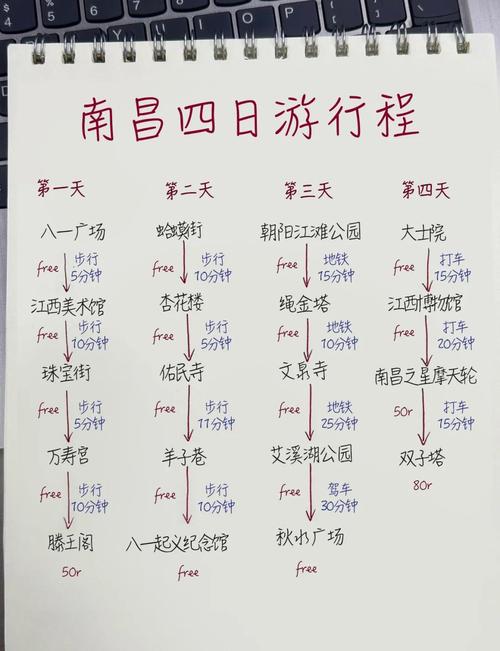 南昌四日游行程
第一天
八一广场
free 步行
5分钟
江西美术馆
free 步行
10分钟
珠宝街
free 步行
5分钟
万寿宫
free 步行
10分钟
滕王阁
50r
第二天
蛤蟆街
free 步行
10分钟
杏花楼
free 步行
5分钟
佑民寺
free 步行
11分钟
羊子巷
free 步行
10分钟
八一起义纪念馆
free
第三天
朝阳江滩公园
free 地铁
15分钟
绳金塔
free 地铁
10分钟
文泉寺
free 地铁
25分钟
艾溪湖公园
free 驾车
30分钟
秋水广场
free
第四天
大士院
free 打车
15分钟
江西博物馆
free 打车
20分钟
南昌之星摩天轮
50r 打车
15分钟
双子塔
80r